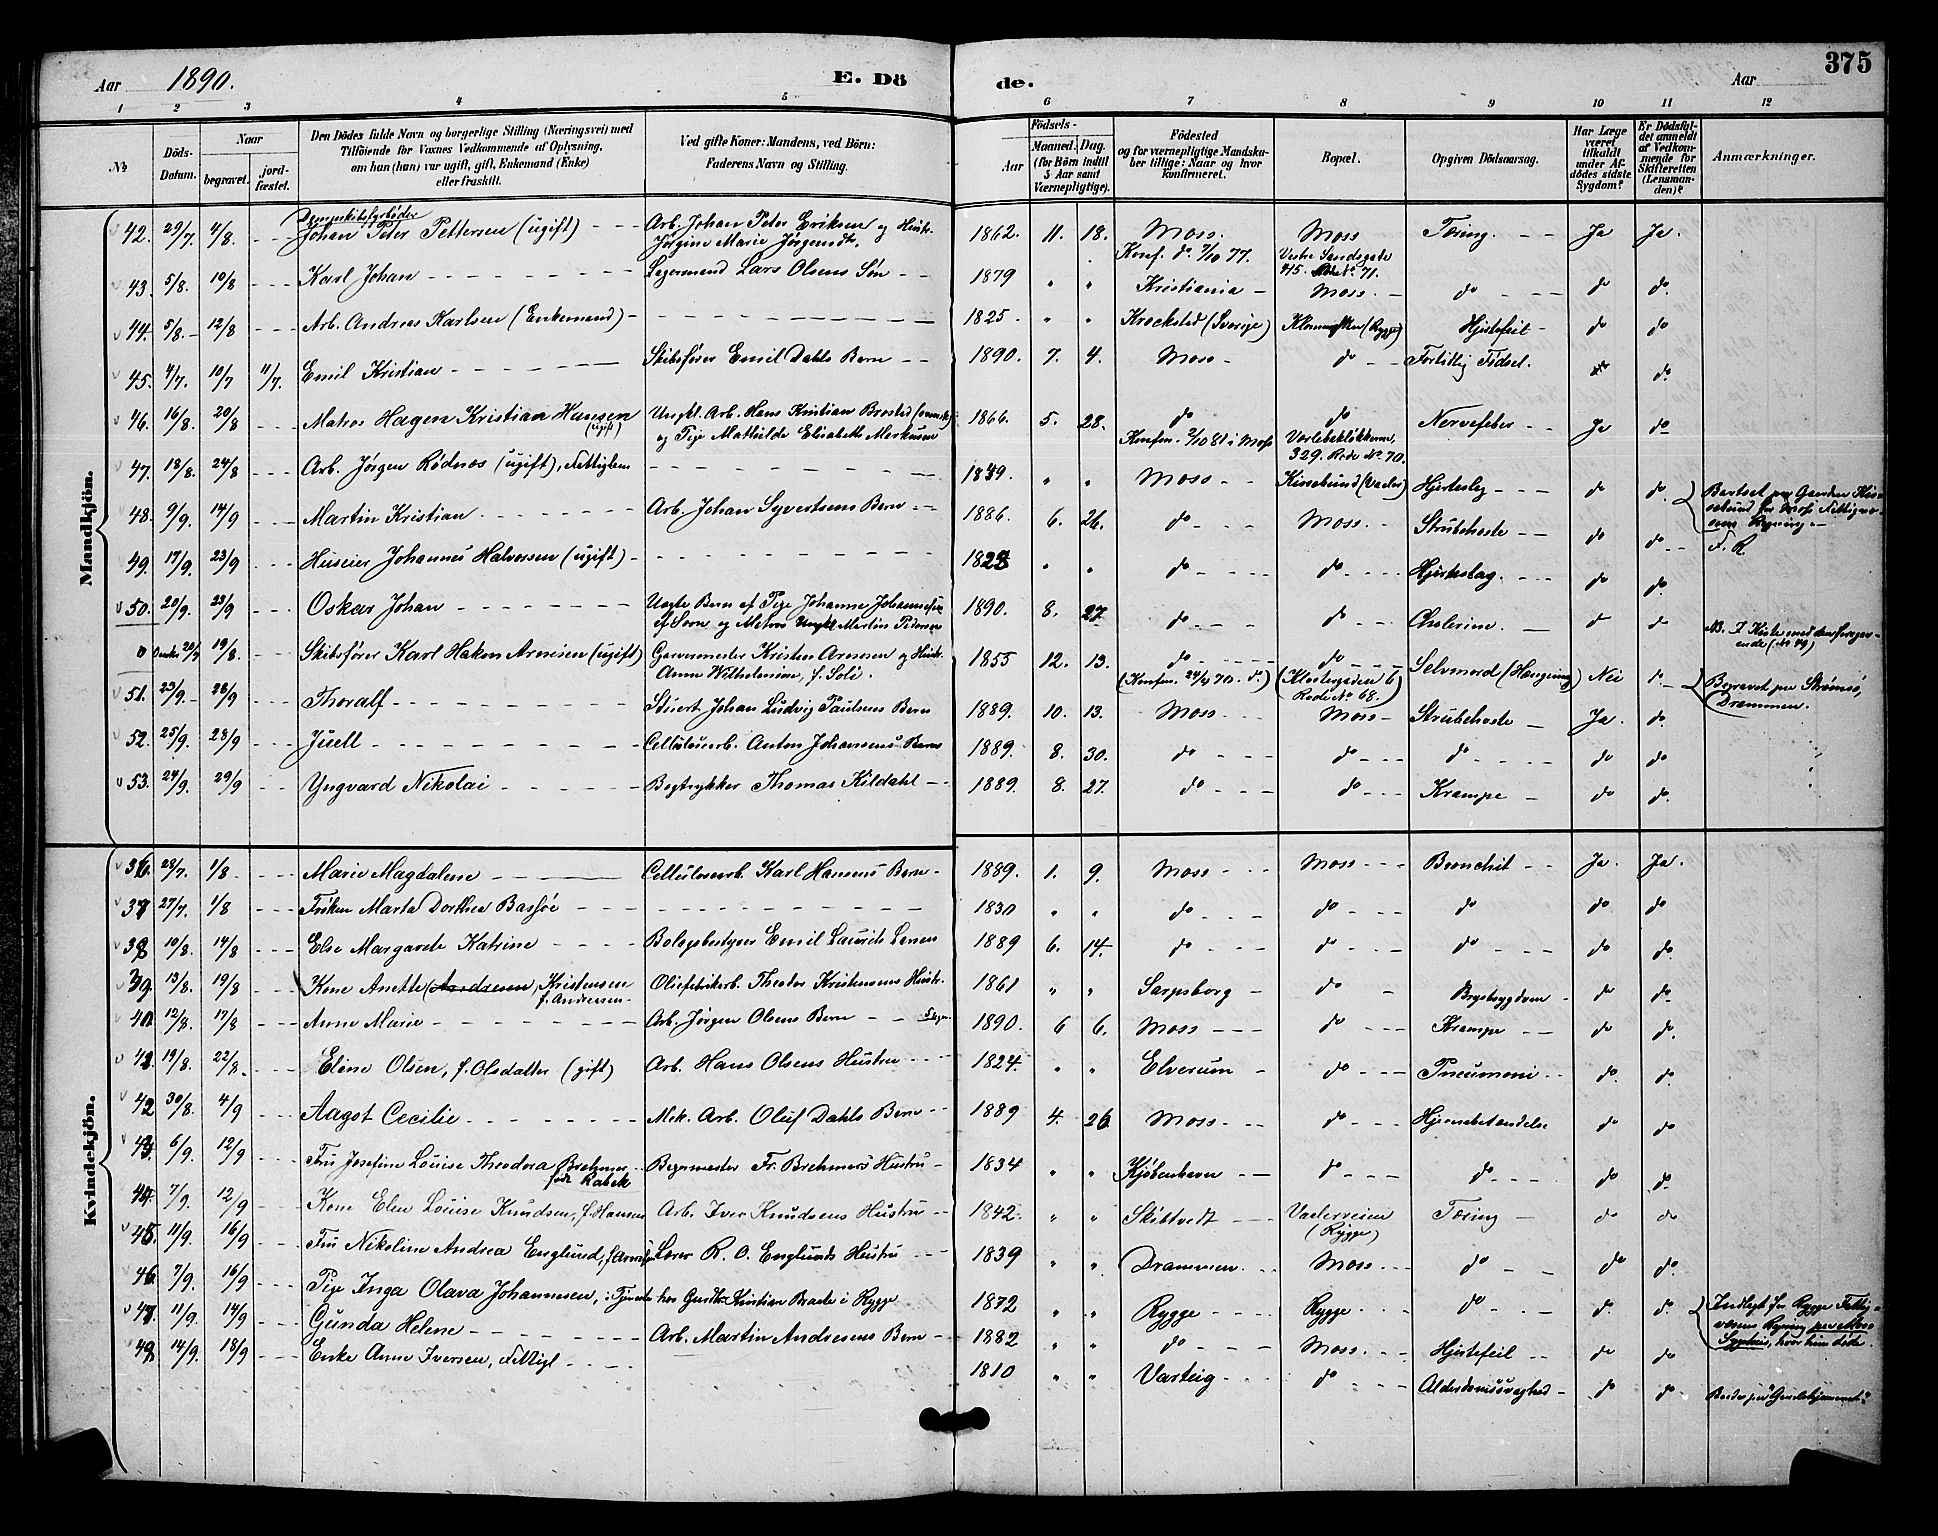 Aar 1890. E. Dö de. Aar 375
1 2 3 4 5 6 7 8 9 10 11 12
№ Döds-Datum. Naar begravet. jordfæstet. Den Dödes fulde Navn og borgerlige Stilling (Næringsvei) med Tilföiende for Voxnes Vedkommende af Oplysning, om han (hun) var ugift, gift, Enkemand (Enke) eller fraskilt. Ved gifte Koner: Mandens, ved Börn: Faderens Navn og Stilling. Födsels- Aar Maaned. Dag. (for Börn indtil 5 Aar samt Værnepligtige). Födested og for værnepligtige Mandskaber tillige: Naar og hvor konfirmeret. Bopæl. Opgiven Dödsaarsag. Har Læge været tilkaldt under Afdödes sidste Sygdom? Er Dödsfaldet anmeldt af Vedkommende for Skifteretten (Lensmanden)? Anmærkninger.
Mandkjön.
42. 29/7. 4/8. Dampskibsfyrböder Johan Peter Pettersen (ugift) Arb. Johan Peter Eriksen og Hustr. Jørgine Marie Jørgensdt. 1862. 11. 18. Moss. Konf. do 7/10 77. Moss Vestre Sandsgade 415. Rode No. 71. Tæring. Ja Ja.
43. 5/8. 10/8 Karl Johan Lars Olsens Søn 1879 " " Kristiania Moss. do do do
44. 5/8. 12/8 Arb. Andreas Karlsen (Enkemand) 1825 " " Krockstad (Sverige) (Rygge) Hjertefeil do do
45. 4/7. 10/7 11/7. Emil Kristian Skibsfører Emil Dahls Barn 1890. 7. 4. Moss do Fortidlig Fødsel. do
46. 16/8 20/8 Matros Hagen Kristian Hansen (ugift) Ungkl. Arb. Hans Kristian Brosted og Pige Mathilde Elisabeth Markusen 1866. 5. 28. do Konfm. 2/10 81 i Moss do Varlebekløkkerne 329. Rode No. 70. Nervefeber Ja do
47. 18/8. 24/8 Arb. Jørgen Rødsnos (ugift), Fattiglem 1839. " " Moss (Vaaler) Hjerteslag do do Fattigvæsens Regning
48. 9/9. 14/9 Martin Kristian Arb. Johan Syvertsens Barn 1886. 6. 26. do Moss. Strubehoste do do F. R.
49. 17/9. 23/9 Huseier Johannes Halvorsen (ugift) 1828 " " do do Hjerteslag. do do
50. 20/9. 23/9 Oskar Johan Uægte Barn af Pige Johanne og Matros Ungkl Martin Pedersen 1890. 8. 27. do do Cholerine. do do NB. I Kiste med den foregaaende (No 49)
0 19/8. Skibsfører Karl Hakon Arnesen (ugift) Garvermester Kristen Arnesen og Hustr. Anne Wilhelmine, f. Soli. 1855 12. 13. do (Konfm. 24/4 70. do) do (Klostergaden 6 Rode No 68.) Selvmord (Hængning) Nei do Begravet paa Strømsø, Drammen.
51. 23/9. 28/9 Thoralf Stuert Johan Ludvig Paulsens Barn 1889. 10. 13. Moss Moss Strubehoste Ja. do
52. 25/9. 28/9 Juell Cellulosearb. Anton Johansens Barn 1889. 8. 30. do do do do do
53. 24/9. 29/9 Yngvard Nikolai Bogtrykker Thomas Kildahl 1889. 8. 27. do do Krampe do do
Kvindekjön.
36. 28/7 1/8. Marie Magdalene Cellulosearb. Karl Hansens Barn 1889. 1. 9. Moss Moss Bronchit Ja. Ja.
37 27/7. 1/8 Frøken Marta Dorthea Bassøe 1830 " " do do do do do
38 10/8. 14/8. Else Margarete Katrine Bolagsbestyrer Emil Laurits 1889 6. 14. do do do do do
39 13/8. 19/8 Kone Anette (Andresen, Kristensen f. Andersen Oliefabrikarb. Theodor Kristensens Hustr. 1861 " " Sarpsborg do Brystsygdom do do
40. 12/8. 17/8 Anne Marie Arb. Jørgen Olsens Barn 1890. 6 6. Moss do Krampe do do
41. 19/8. 22/8. Eline Olsen, f. Olsdatter (gift) Arb. Hans Olsens Hustru 1824. " " Elverum do Pneumoni do. do.
42 30/8. 4/9 Aagot Cecilie Mek. Arb. Oluf Dahls Barn 1889 4. 26. Moss do Hjernebetændelse do do
43. 6/9. 12/9 Fru Josefine Louise Theodora Brehmer født Rabek Fr. Brehmers Hustru 1834 " " Kjøbenhavn do do do do
44. 7/9. 12/9 Kone Elen Louise Knudsen, f. Hansen Arb. Iver Knudsens Hustru 1842 " " Skibtvedt Vaalerveien (Rygge) Tæring do do
45. 11/9. 16/9 Fru Nikoline Andrea Englund, Lærer R. O. Englunds Hustru 1839 " " Drammen. Moss. do do do
46. 7/9. 16/9 Pige Inga Olava Johannesen, i Tjeneste hos Gaardbr. Kristian Braate i Rygge 1872 " " Rygge Rygge do do do Indlagt for Rygge Fattigvæsens Regning paa Moss Sygehus, hvor hun døde.
47. 11/9. 14/9 Gunda Helene Arb. Martin Andresens Barn 1882 " " do Moss. Hjertefeil do do
48 14/9. 18/9 Enke Anne Iversen, Fattigl. 1810 " " Varteig do Alderdomssvaghed do do